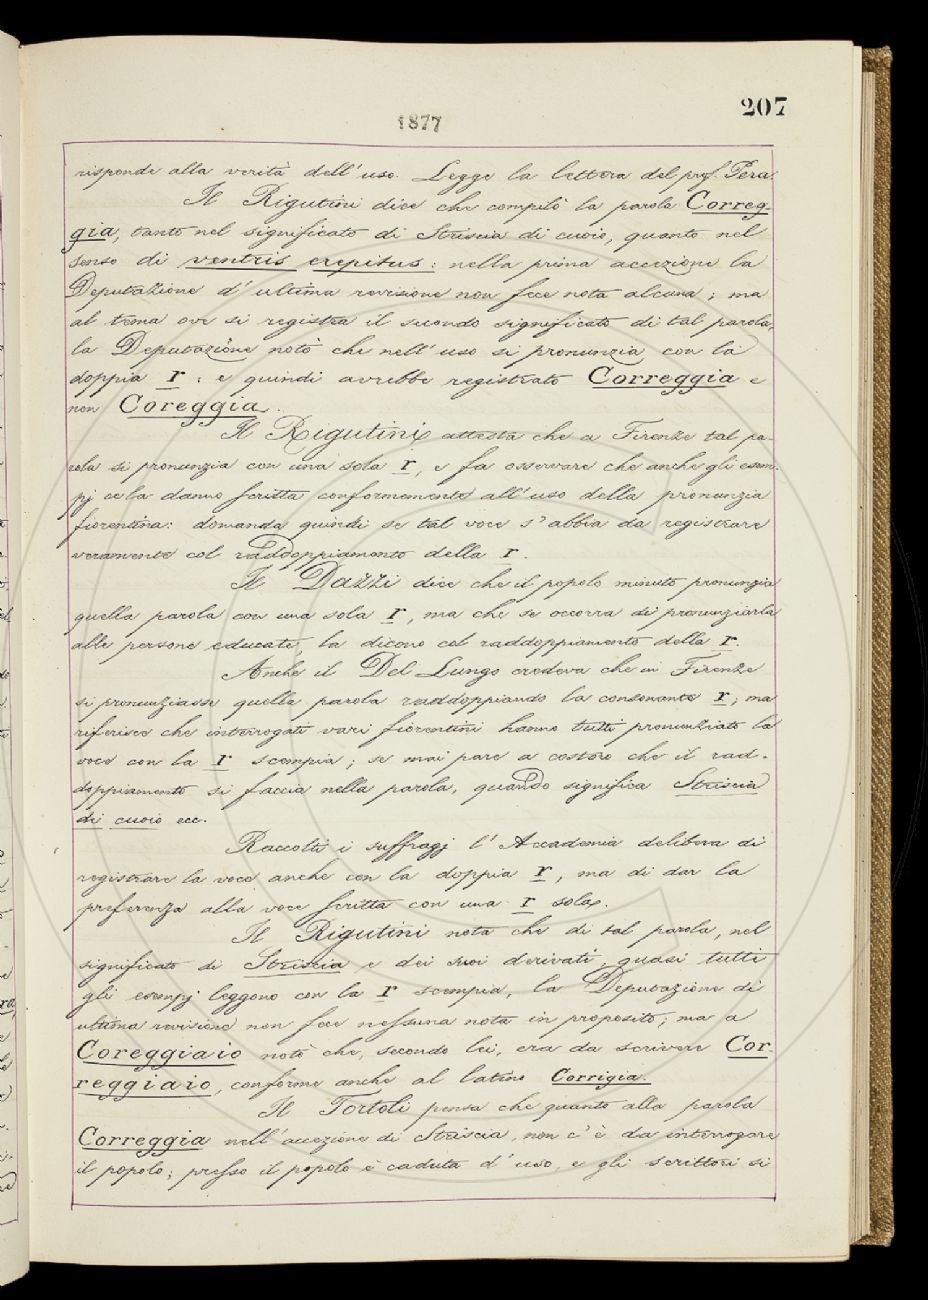 207
1877
risponde alla verità dell'uso. Legge la lettera del prof. Pera.
Il Rigutini dice che compilò la parola Correg-
gia, tanto nel significato di Striscia di cuoio, quanto nel
senso di ventris crepitus: nella prima accezione la
Deputazione d'ultima revisione non fece nota alcuna; ma
al tema ove si registra il secondo significato di tal parola,
la Deputazione notò che nell'uso si pronunzia con la
doppia r: e quindi avrebbe registrato Correggia e
non Coreggia.
Il Rigutini attesta che a Firenze tal pa-
rola si pronunzia con una sola r, e fa osservare che anche gli esem-
pj ce la danno scritta conformemente all'uso della pronunzia
fiorentina: domanda quindi se tal voce s'abbia da registrare
veramente col raddoppiamento della r.
Il Dazzi dice che il popolo minuto pronunzia
quella parola con una sola r, ma che se occorra di pronunziarla
alle persone educate, la dicono col raddoppiamento della r.
Anche il Del Lungo credeva che in Firenze
si pronunziasse quella parola raddoppiando la consonante r; ma
riferisce che interrogati vari fiorentini hanno tutti pronunziato la
voce con la r scempia; se mai pare a costoro che il rad-
doppiamento si faccia nella parola, quando significa Striscia
di cuoio ecc.
Raccolti i suffragj l'Accademia delibera di
registrare la voce anche con la doppia r, ma di dar la
preferenza alla voce scritta con una r sola.
Il Rigutini nota che di tal parola, nel
significato di Striscia e dei suoi derivati, quasi tutti
gli esempj leggono con la r scempia, la Deputazione di
ultima revisione non fece nessuna nota in proposito; ma a
Coreggiaio notò che, secondo lei, era da scrivere Cor-
reggiaio, conforme anche al latino Corrigia.
Il Tortoli pensa che quanto alla parola
Correggia nell'accezione di Striscia, non c'è da interrogare
il popolo; presso il popolo è caduta d'uso, e gli scrittori si